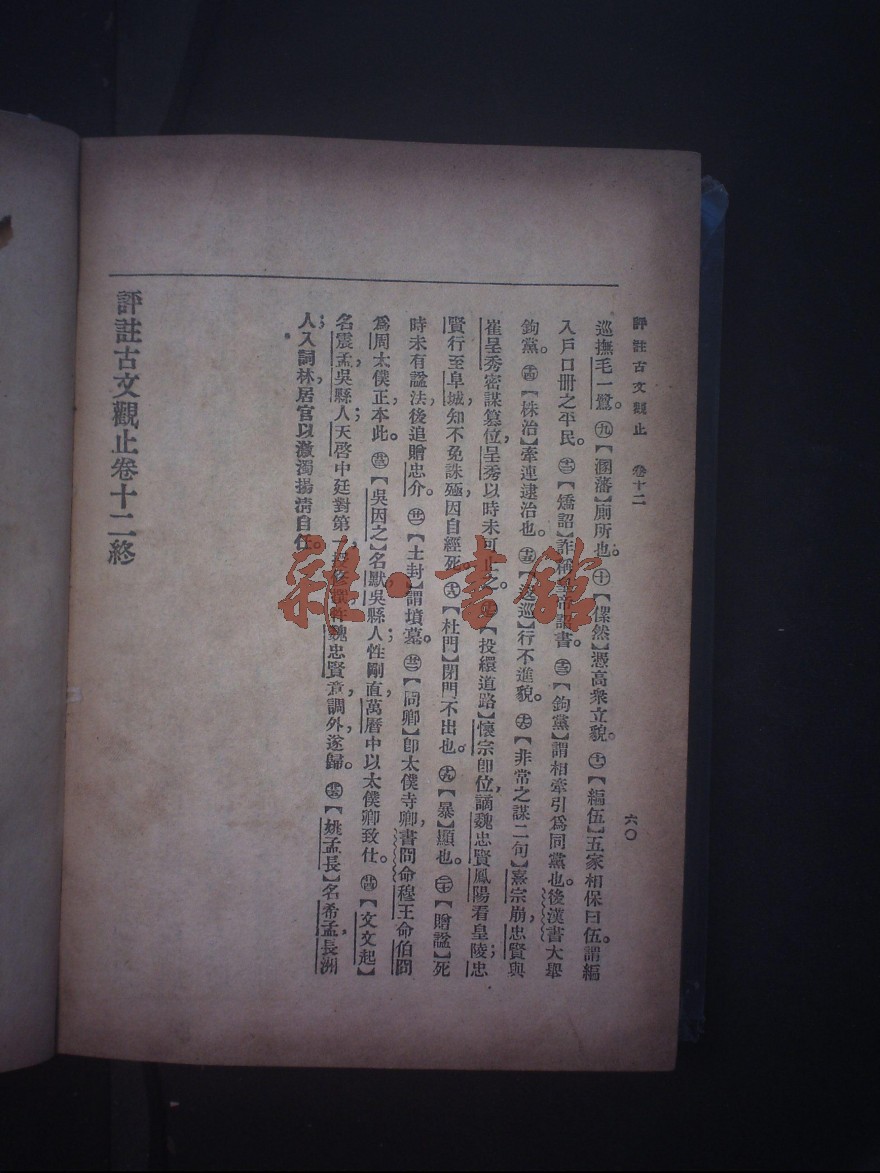 評註古文觀止　卷十二
六〇
巡撫毛一鷺。㊈【溷藩】廁所也。㊉【傫然】憑高衆立貌。【編伍】五家相保曰伍。謂編
入戶口册之平民。【矯詔】詐稱皇帝詔書。【鉤黨】謂相牽引爲同黨也。後漢書大舉
鉤黨。【株治】牽連逮治也。【逡巡】行不進貌。【非常之謀二句】熹宗崩，忠賢與
崔呈秀密謀篡位，呈秀以時未可止之。【投繯道路】懷宗卽位，謫魏忠賢鳳陽看皇陵；忠
賢行至阜城，知不免誅殛，因自經死。【杜門】閉門不出也。【暴】顯也。【贈諡】死
時未有諡法，後追贈忠介。【土封】謂墳墓。【冏卿】卽太僕寺卿，書冏命穆王命伯冏
爲周太僕正本此。【吳因之】名默，吳縣人；性剛直，萬曆中以太僕卿致仕。【文文起】
名震孟，吳縣人；天啓中廷對第魏忠賢意，調外遂歸。【姚孟長】名希孟，長洲
人；入詞林，居官以激濁揚淸自任。
評註古文觀止卷十二終
雜·書館